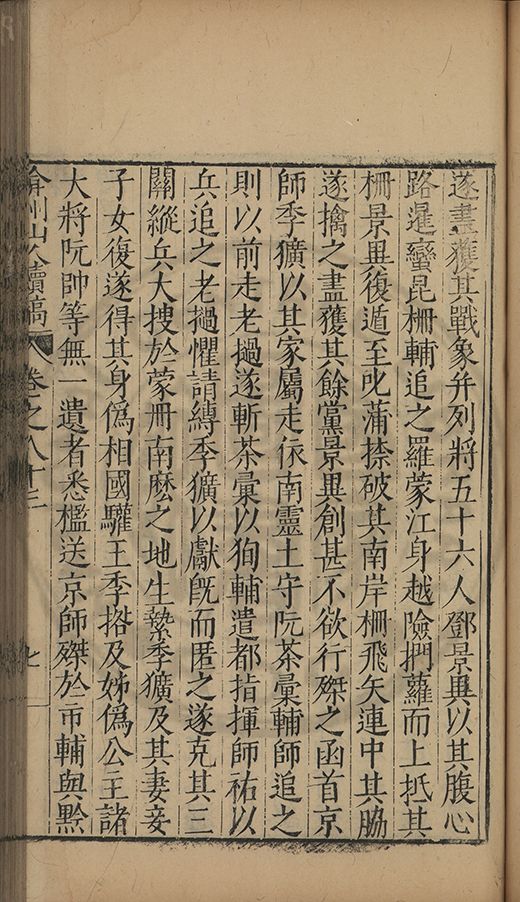 遂盡獲其戰象并列將五十六人鄧景異以其腹心
路暹蠻昆柵輔追之羅蒙江身越險捫蘿而上抵其
柵景異復遁至叱蒲捺破其南岸柵飛矢連中其脇
遂擒之盡獲其餘黨景異創甚不欲行磔之函首京
師季獷以其家屬走依南靈土守阮茶彙輔師追之
則以前走老撾遂斬茶彙以狥輔遣都指揮師祐以
兵追之老撾懼請縳季獷以獻旣而匿之遂克其三
關縱兵大搜於蒙冊南麽之地生縶季獷及其妻妾
子女復遂得其身僞相國驩王季㨶及姊僞公主諸
大將阮帥等無一遺者悉檻送京師磔於市輔與黔
弇州山人續稿 卷之八十二 七